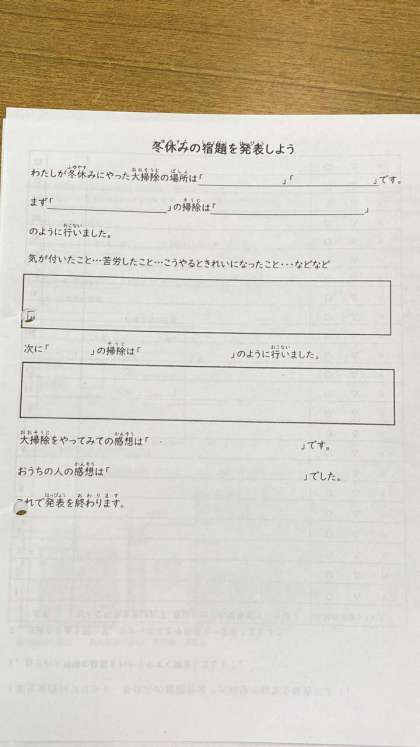 冬休みの宿題を発表しよう
わたしが冬休みにやった大掃除の場所は「　　　　　」「　　　　　」です。
まず「　　　　　」の掃除は「　　　　　」
のように行いました。
気が付いたこと…苦労したこと…こうやるときれいになったこと・・・などなど
次に「　　　　　」の掃除は「　　　　　」のように行いました。
大掃除をやってみての感想は「　　　　　」です。
おうちの人の感想は「　　　　　」でした。
れで発表を終わります。